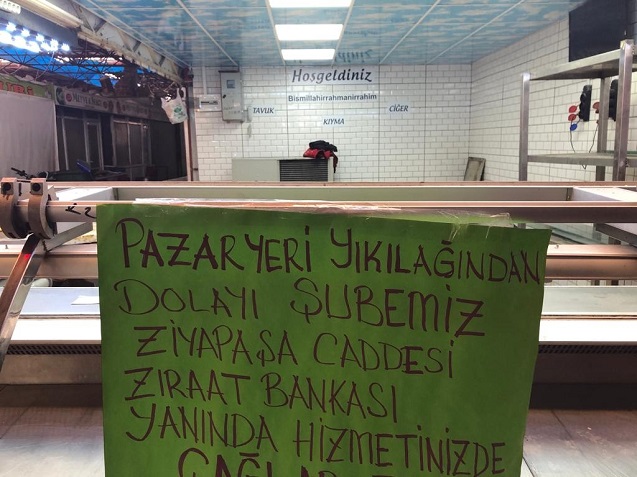 Hoşgeldiniz
Bismillahirrahmanirrahim
TAVUK
CİĞER
KIYMA
PAZAR YERİ YIKILAĞINDAN
DOLAYI ŞUBEMİZ
ZİYAPAŞA CADDESİ
ZIRAAT BANKASI
YANINDA HİZMETİNİZDE